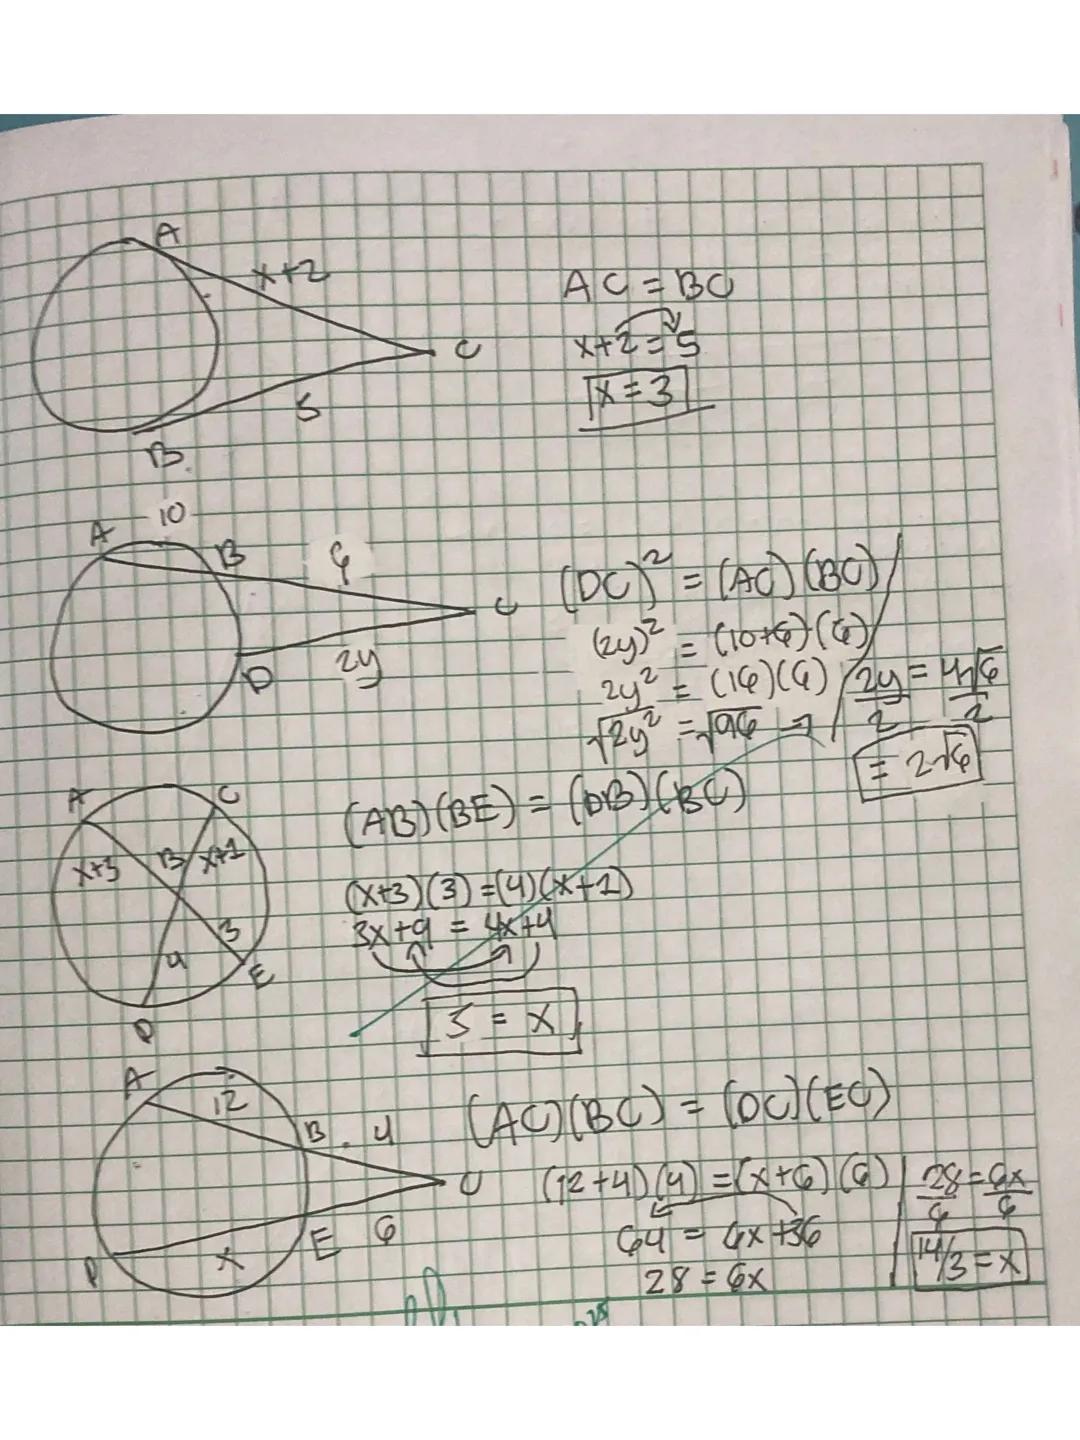 A
x+2
C
5
B
AC = BC
x+2 = 5
x = 3
A 10
B 6
C
D 2y
(DC)² = (AC)(BC)
(2y)² = (10+6)·(6)
2y² = (16)(6)
√2y² = √96 ⇒
2y/2 = 4√6/2
= 2√6
A C
x+3 B x+1
3
4
E
D
(AB)(BE) = (DB)(BC)
(x+3)(3) = (4)(x+1)
3x+9 = 4x+4
5 = x
A
12
B 4
C
E 6
D x
(AC)(BC) = (DC)(EC)
(12+4)(4) = (x+6)(6)
64 = 6x+36
28 = 6x
28/6 = 6x/6
14/3 = x